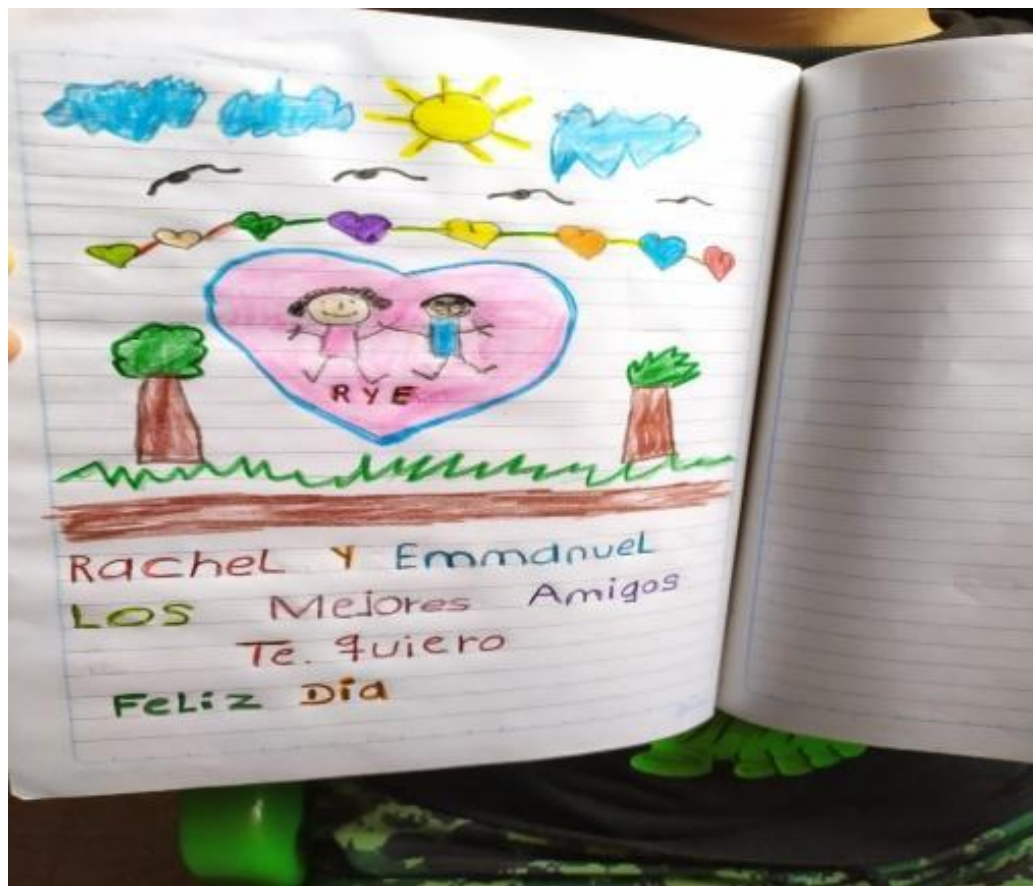 R Y E
Rachel Y Emmanuel
Los Mejores Amigos
Te. quiero
Feliz Día